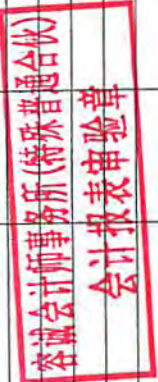 容诚会计师事务所(特殊普通合伙)
会计报表审验章